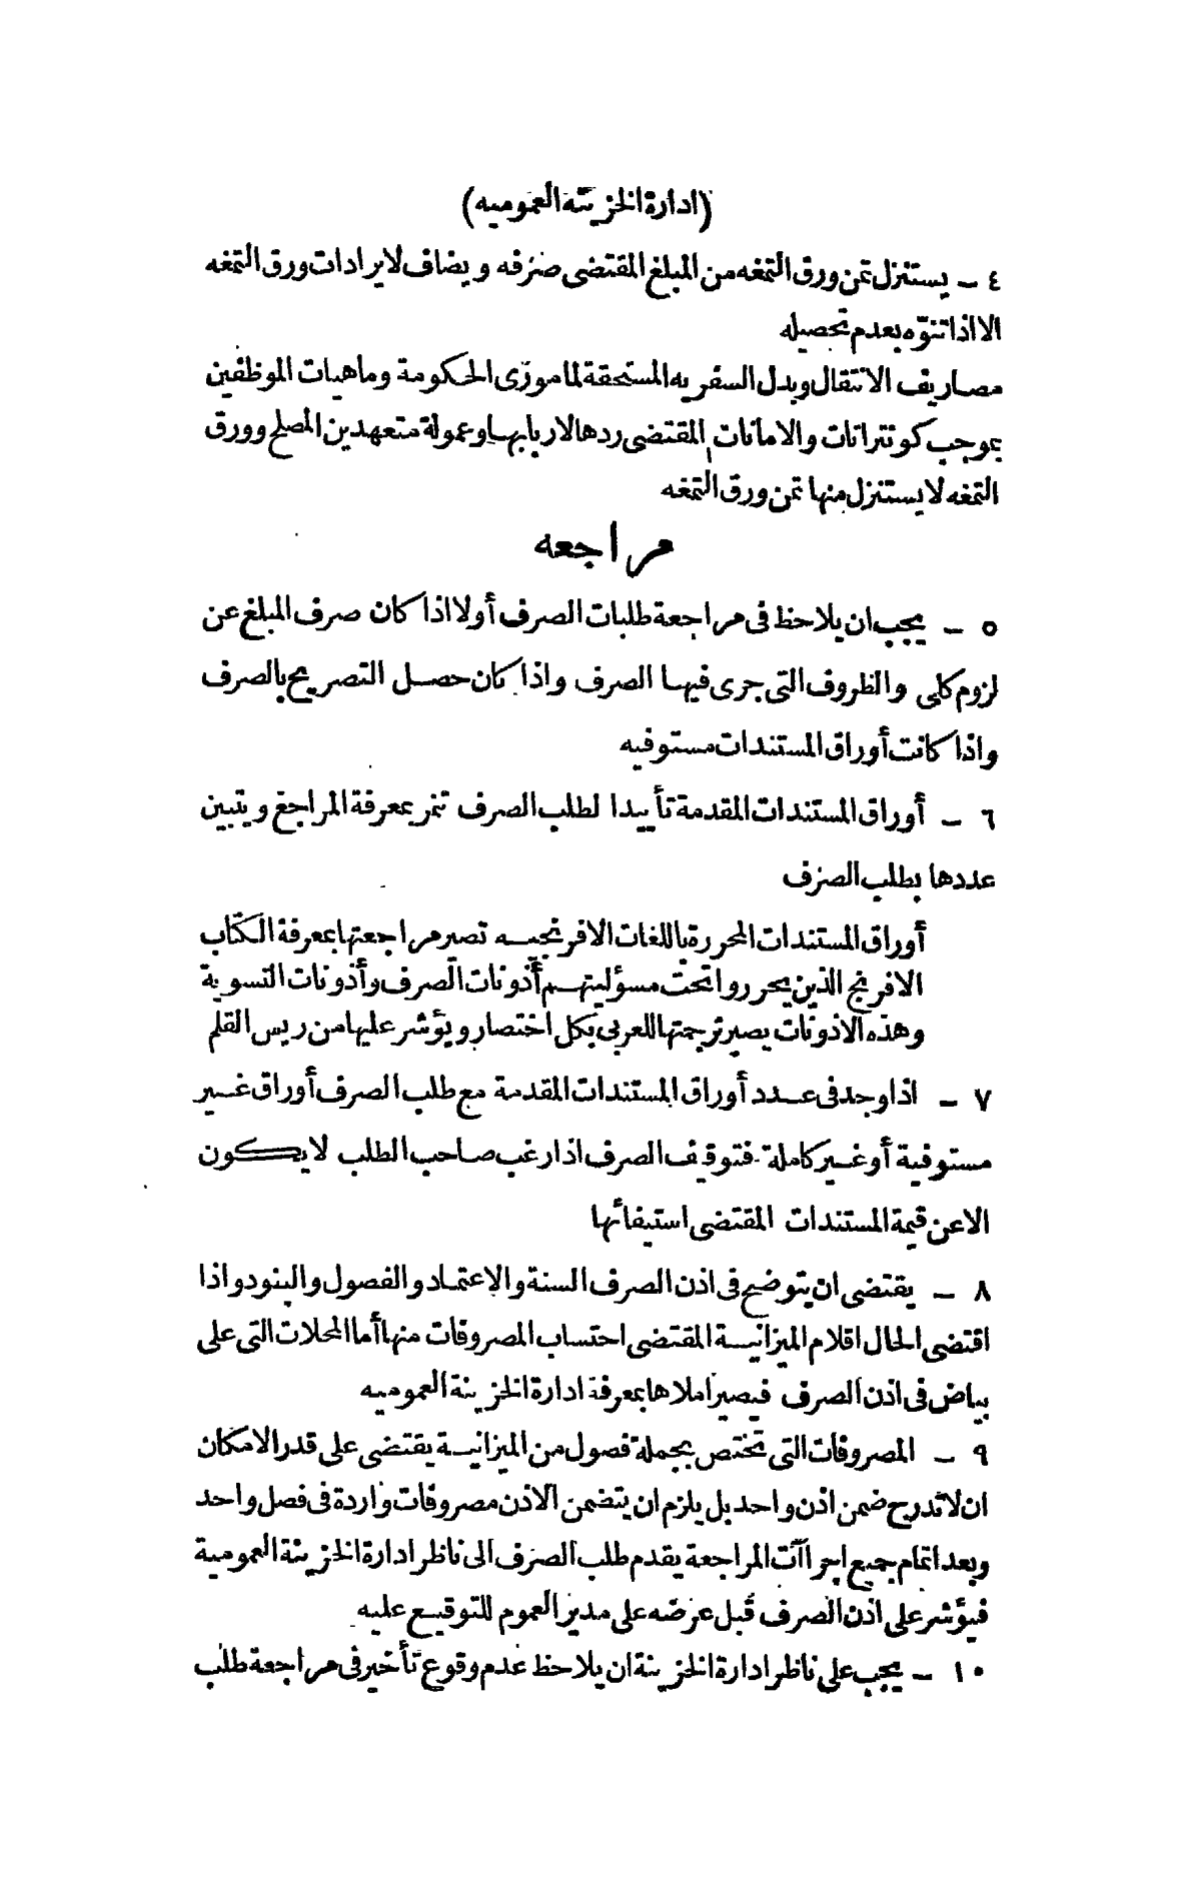 (ادارة الخزينة العموميه)
٤ — يستنزل ثمن ورق التمغه من المبلغ المقتضى صرفه ويضاف لايرادات ورق التمغه
الا اذا تنوّه بعدم تحصيله
مصاريف الانتقال وبدل السفريه المستحقة لمامورى الحكومة وماهيات الموظفين
بموجب كونتراتات والامانات المقتضى ردها لاربابها وعمولة متعهدين الملح وورق
التمغه لا يستنزل منها ثمن ورق التمغه
مراجعه
٥ — يجب ان يلاحظ فى مراجعة طلبات الصرف أولا اذا كان صرف المبلغ عن
لزوم كلى والظروف التى جرى فيها الصرف واذا كان حصل التصريح بالصرف
واذا كانت أوراق المستندات مستوفيه
٦ — أوراق المستندات المقدمة تأييدا لطلب الصرف تنمر بمعرفة المراجع ويتبين
عددها بطلب الصرف
أوراق المستندات المحررة باللغات الافرنجيه تصير مراجعتها بمعرفة الكتّاب
الافرنج الذين يحرروا تحت مسؤليتهم أذونات الصرف وأذونات التسوية
وهذه الاذونات يصير ترجمتها للعربى بكل اختصار ويؤشر عليها من ريس القلم
٧ — اذا وجد فى عدد أوراق المستندات المقدمة مع طلب الصرف أوراق غير
مستوفية أو غير كاملة فتوقيف الصرف اذا رغب صاحب الطلب لا يكون
الا عن قيمة المستندات المقتضى استيفائها
٨ — يقتضى ان يتوضح فى اذن الصرف السنة والاعتماد والفصول والبنود واذا
اقتضى الحال اقلام الميزانية المقتضى احتساب المصروفات منها أما المحلات التى على
بياض فى اذن الصرف فيصير املاها بمعرفة ادارة الخزينة العموميه
٩ — المصروفات التى تختص بجملة فصول من الميزانية يقتضى على قدر الامكان
ان لا تدرج ضمن اذن واحد بل يلزم ان يتضمن الاذن مصروفات واردة فى فصل واحد
وبعد اتمام جميع اجراآت المراجعة يقدم طلب الصرف الى ناظر ادارة الخزينة العمومية
فيؤشر على اذن الصرف قبل عرضه على مدير العموم للتوقيع عليه
١٠ — يجب على ناظر ادارة الخزينة ان يلاحظ عدم وقوع تأخير فى مراجعة طلب